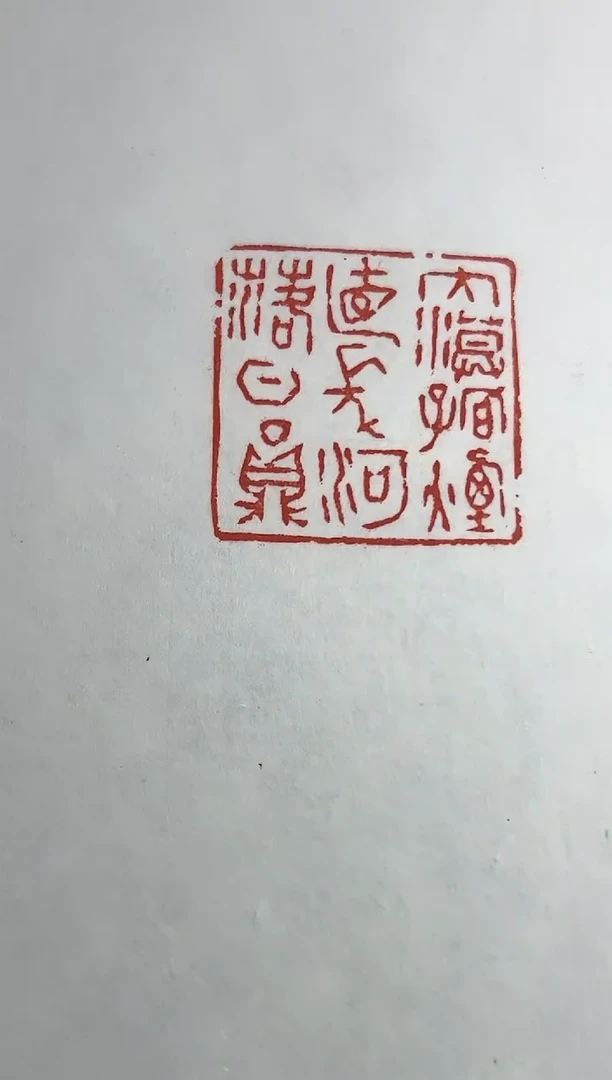 大漠孤煙
直長河
落日圓